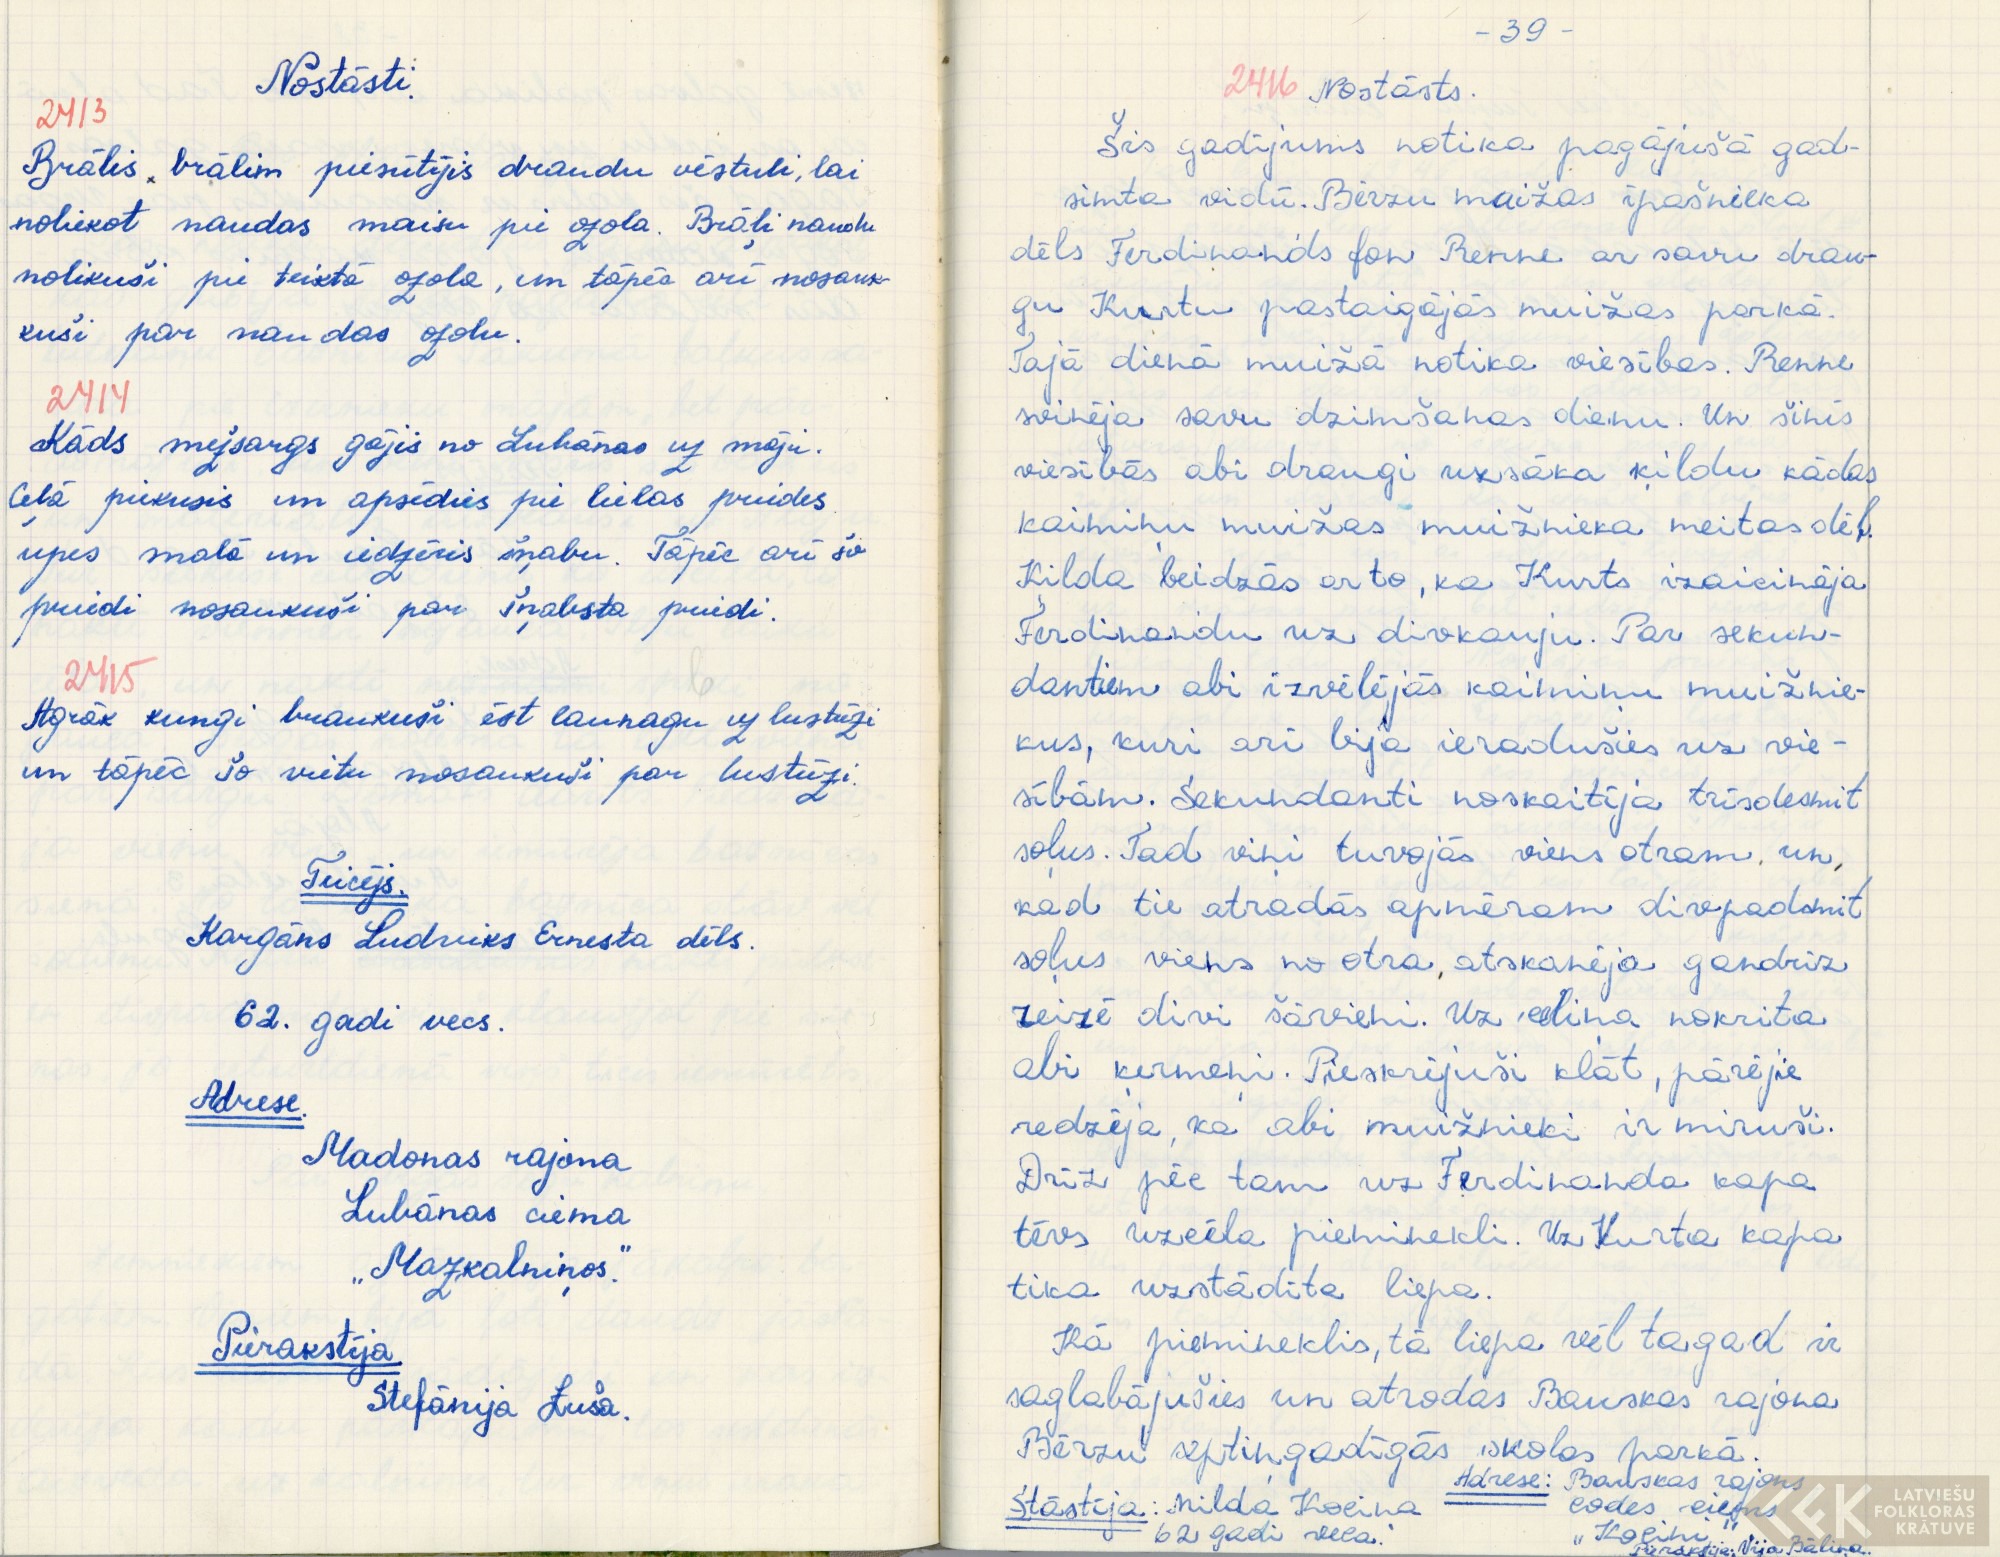 Nostāsti.
2413
Brālis brālim piesūtījis draudu vēstuli, lai
noliekot naudas maisu pie ozola. Brāļi naudu
nolikuši pie teiktā ozola, un tāpēc arī nosauk-
kuši par naudas ozolu.
2414
Kāds mežsargs gājis no Lubānas uz māju.
Ceļā piekusis un apsēdies pie lielas priedes
upes malā un iedzēris šņabu. Tāpēc arī šo
priedi nosaukuši par šņabsta priedi.
2415
Agrāk kungi braukuši ēst launagu uz lustūzi
un tāpēc šo vietu nosaukuši par lustūzi.
Teicējs.
Kargāns Ludviks Ernesta dēls.
62. gadi vecs.
Adrese.
Madonas rajona
Lubānas ciema
„Mazkalniņos."
Pierakstīja
Stefānija Luša.
- 39 -
2416 Nostāsts.
Šis gadījums notika pagājušā gad-
simta vidū. Bērzu muižas īpašnieka
dēls Ferdinands fon Renne ar savu drau-
gu Kurtu pastaigājās muižas parkā.
Tajā dienā muižā notika viesības. Renne
svinēja savu dzimšanas dienu. Un šinīs
viesībās abi draugi uzsāka ķildu kādas
kaimiņu muižas muižnieka meitas dēļ.
Ķilda beidzās ar to, ka Kurts izaicināja
Ferdinandu uz divkauju. Par sekun-
dantiem abi izvēlējās kaimiņu muižnie-
kus, kuri arī bija ieradušies uz vie-
sībām. Sekundanti noskaitīja trīsdesmit
soļus. Tad viņi tuvojās viens otram, un,
kad tie atradās apmēram divpadsmit
soļus viens no otra, atskanēja gandrīz
reizē divi šāvieni. Uz celiņa nokrita
abi ķermeņi. Pieskrējuši klāt, pārējie
redzēja, ka abi muižnieki ir miruši.
Drīz pēc tam uz Ferdinanda kapa
tēvs uzcēla pieminekli. Uz Kurta kapa
tika uzstādīta liepa.
Kā piemineklis, tā liepa vēl tagad ir
saglabājušies un atrodas Bauskas rajona
Bērzu septiņgadīgās skolas parkā.
Stāstīja: Milda Kociņa
62 gadi veca.
Adrese: Bauskas rajons
Codes ciems
„Kociņi"
Pierakstīja: Vija Bāliņa.
LATVIEŠU
FOLKLORAS
KRĀTUVE